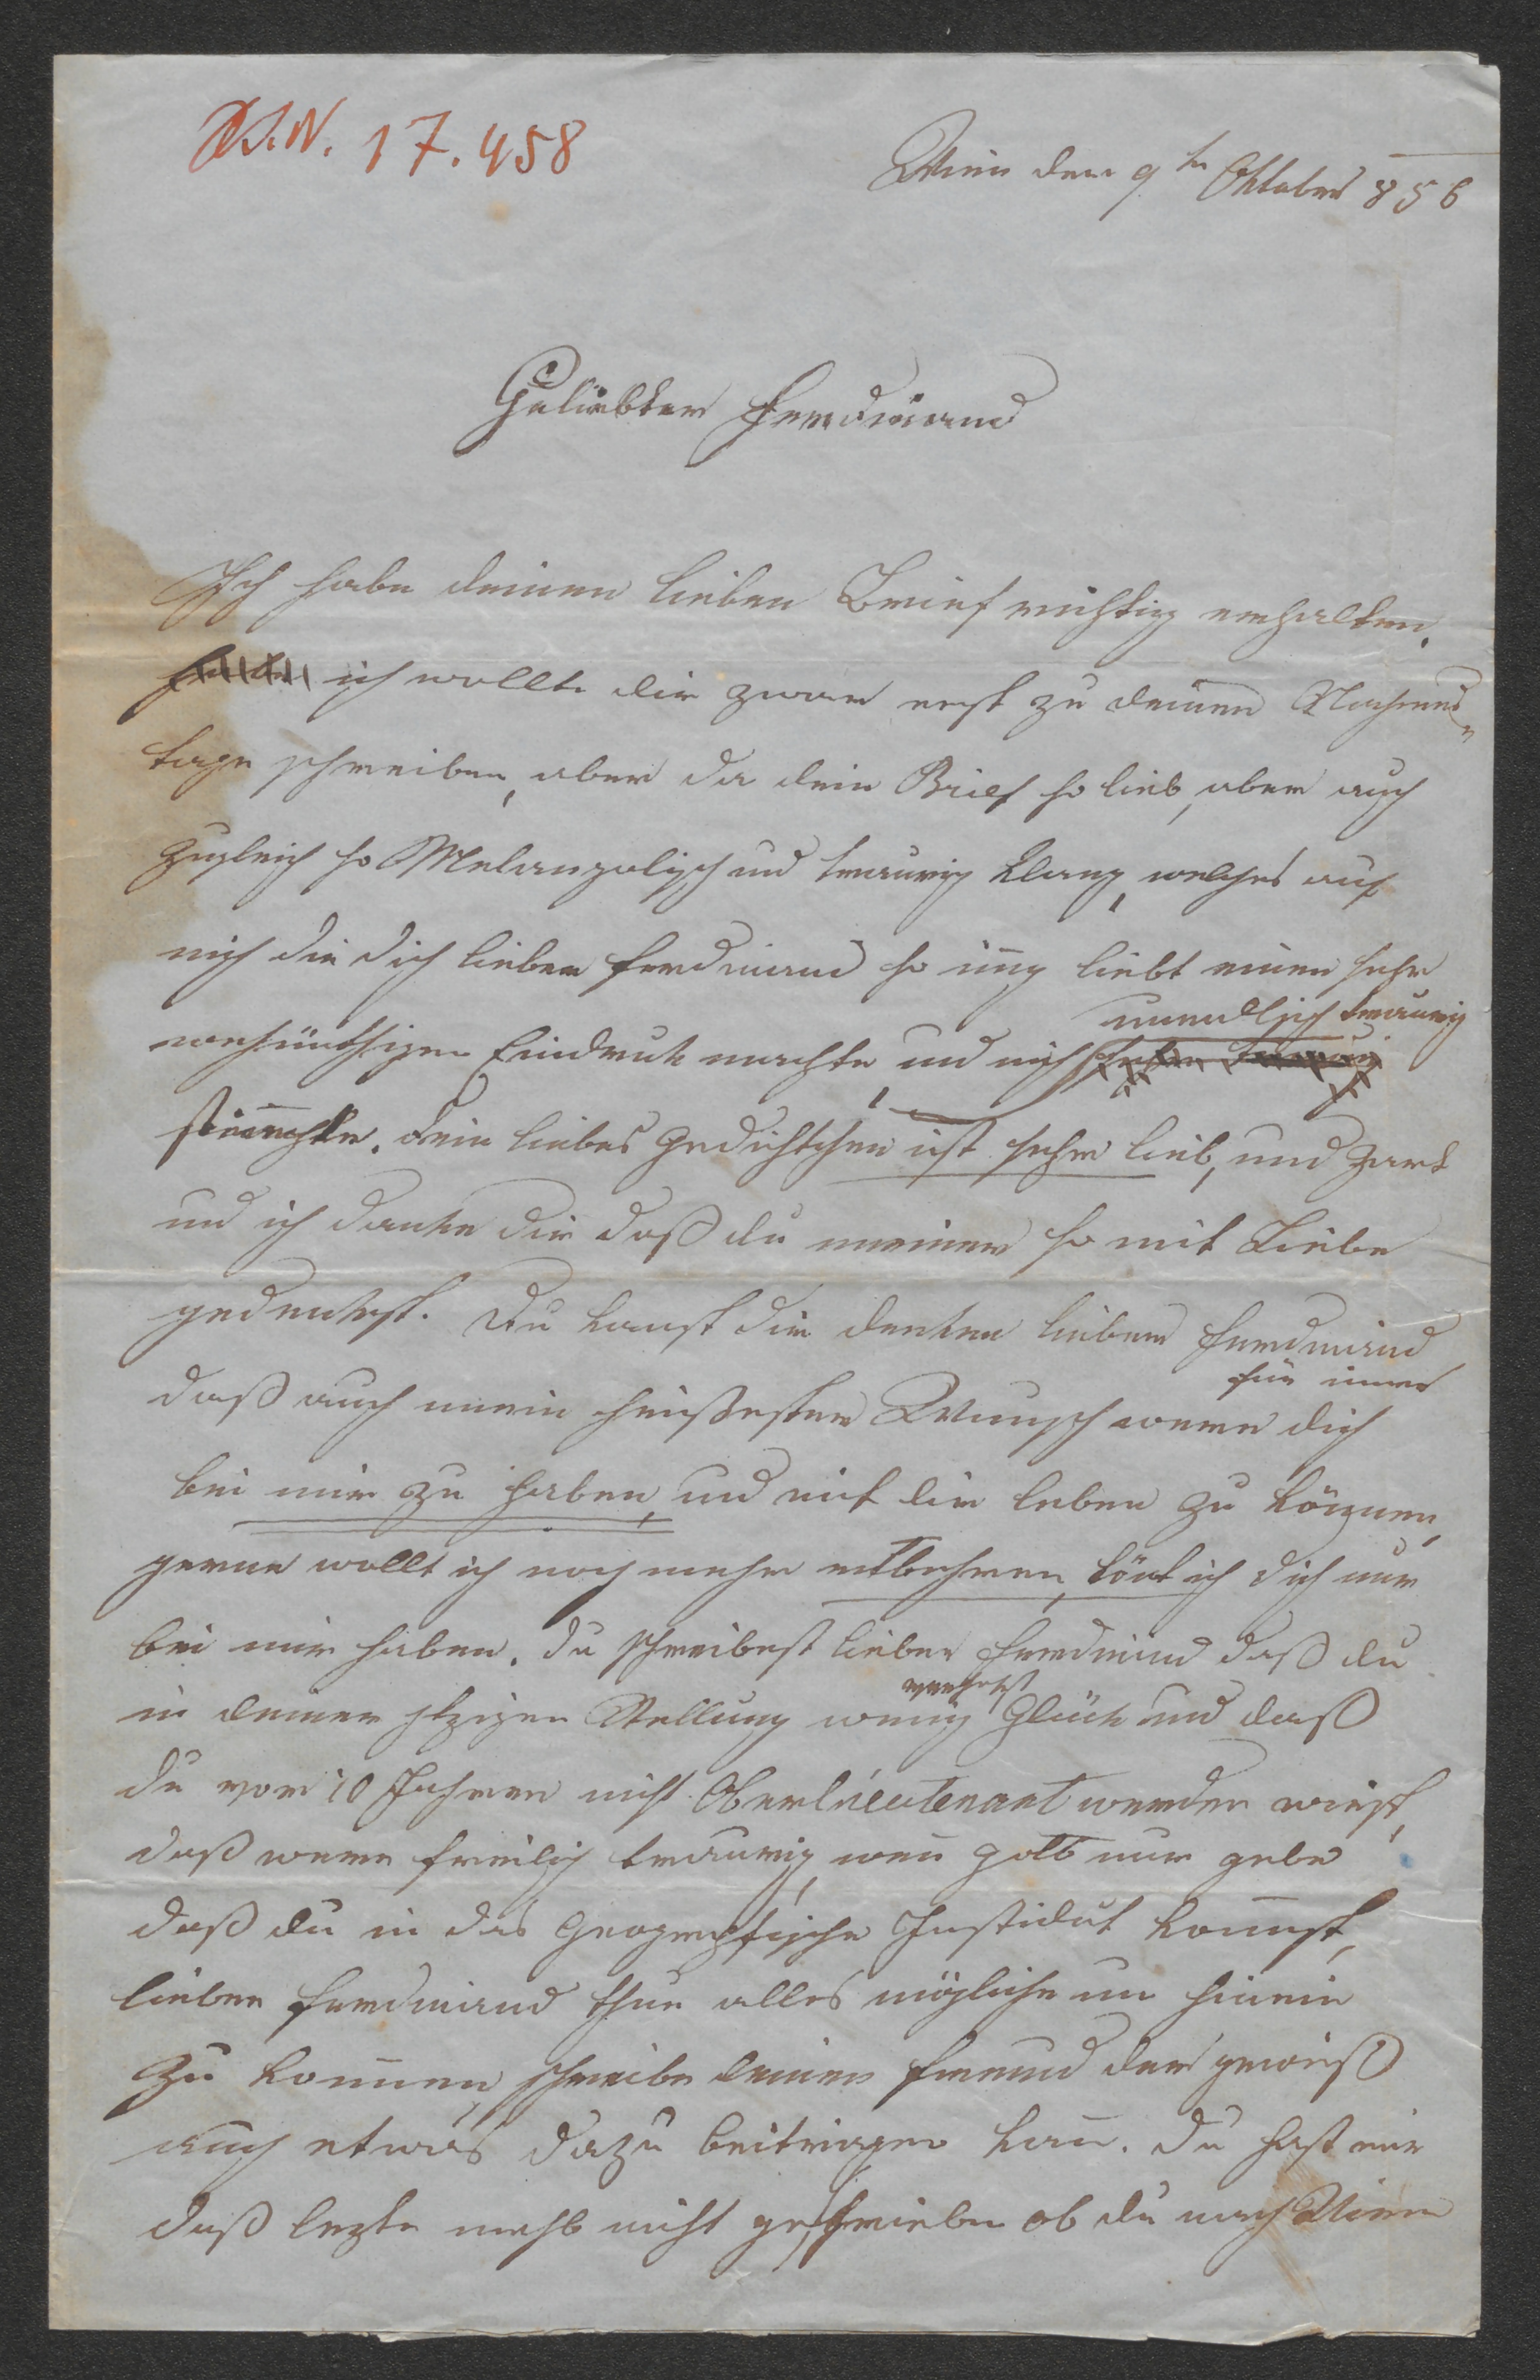 I.N. 17.458
Wien den 9ten Oktober 856
Geliebter Ferdinand
Ich habe deinen lieben Brief richtig erhalten.
ich wollte dir zwar erst zu deinen Nahmens
tage schreiben, aber da dein Brief so lieb, aber auch
zugleich so Melangolisch und traurig klang, welches auf
mich die dich lieber Ferdinand so inig liebt einen sehr
unendlich traurig
wehmüthigen Eindruck machte, und mich sehr traurig
stimmte. dein liebes Gedichtchen ist sehr lieb, und zart
und ich danke dir daß du meiner so mit Liebe
gedenkest. Du kanst dir denken lieber Ferdinand
für immer
daß auch mein heißester Wunsch were dich
bei mir zu haben, und mit dir leben zu könen,
gerne wollt ich noch mehr entbehren, könt ich dich nur
bei mir haben. du schreibest lieber Ferdinand daß du
in deiner jezigen Stellung wenig Glück und daß
du vor 10 Jahren nicht Oberlieutenant werden wirst,
daß were freilich traurig, wen gott nur gebe
daß du in das Geografische Institut komst,
lieber Ferdinand thue alles mögliche um hinein
zu kommen, schreibe deinen Freund der gewiß
auch etwas dazu beitragen kan. du hast mir
daß lezte mahl nicht geschrieben ob du nach Wien